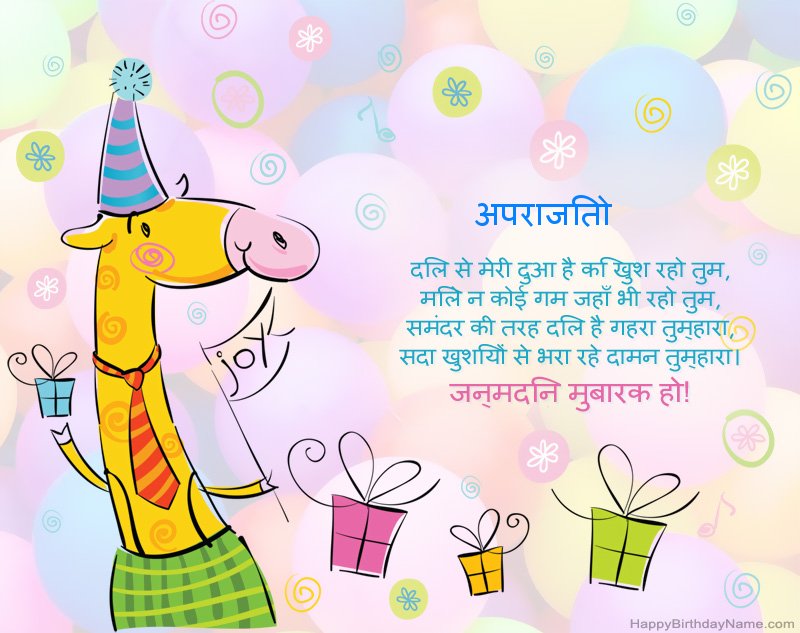 अपराजतिो
दलि से मेरी दुआ है क िखुश रहो तुम,
मलिे न कोई गम जहाँ भी रहो तुम,
joy
समंदर की तरह दलि है गहरा तुम्‌हारा,
सदा खुशयिों से भरा रहे दामन तुम्‌हारा।
जन्‌मदनि मुबारक हो!
HappyBirthdayName.com